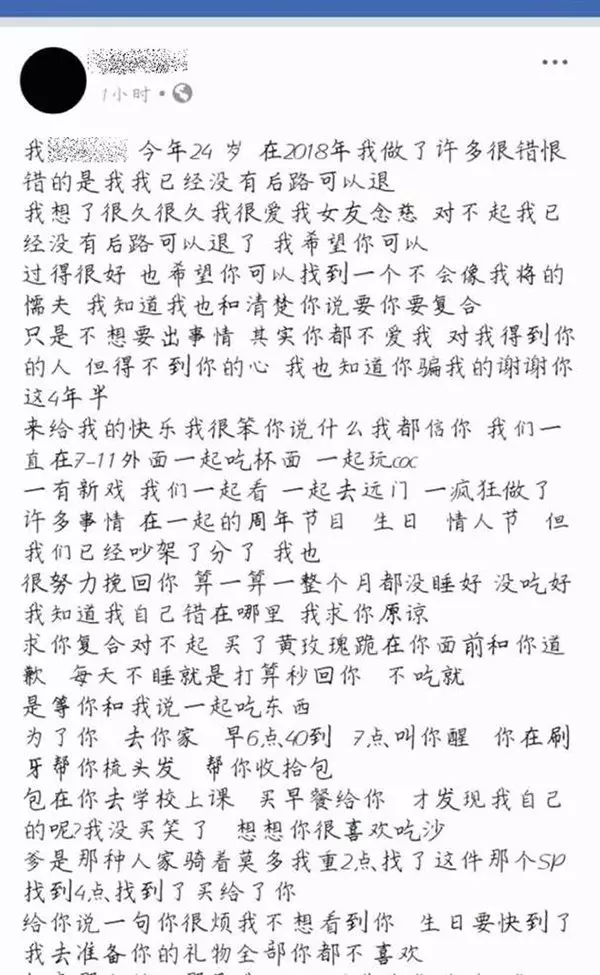 1小时
我 今年24 岁 在2018年我做了许多很错恨
错的是我我已经没有后路可以退
我想了很久很久我很爱我女友念慈 对不起我已
经没有后路可以退了 我希望你可以
过得很好 也希望你可以找到一个不 会像我将的
懦夫 我知道我也和清楚你说要你要复合
只是不想要出事情 其实你都不爱我 对我得到你
的人 但得不到你的心 我也知道你骗我的谢谢你
这4年半
来给我的快乐我很笨你说什么我都信你 我们一
直在7-11外面一起吃杯面 一起玩coc
一有新戏 我们一起看 一起去远门 一疯狂做了
许多事情 在一起的周年节目 生日 情人节 但
我们已经吵架了分了 我也
很努力挽回你 算一算一整个月都没睡好 没吃好
我知道我自己错在哪里 我求你原谅
求你复合对不起 买了黄玫瑰跪在你面前和你道
歉 每天不睡就是打算秒回你 不吃就
是等你和我说一起吃东西
为了你 去你家 早6点40到 7点叫你醒 你在刷
牙帮你梳头发 帮你收拾包
包在你去学校上课 买早餐给你 才发现我自己
的呢?我没买笑了 想想你很喜欢吃沙
爹是那种人家骑着莫多我重2点找了这件那个SP
找到4点找到了买给了你
给你说一句你很烦我不想看到你 生日要快到了
我去准备你的礼物全部你都不喜欢